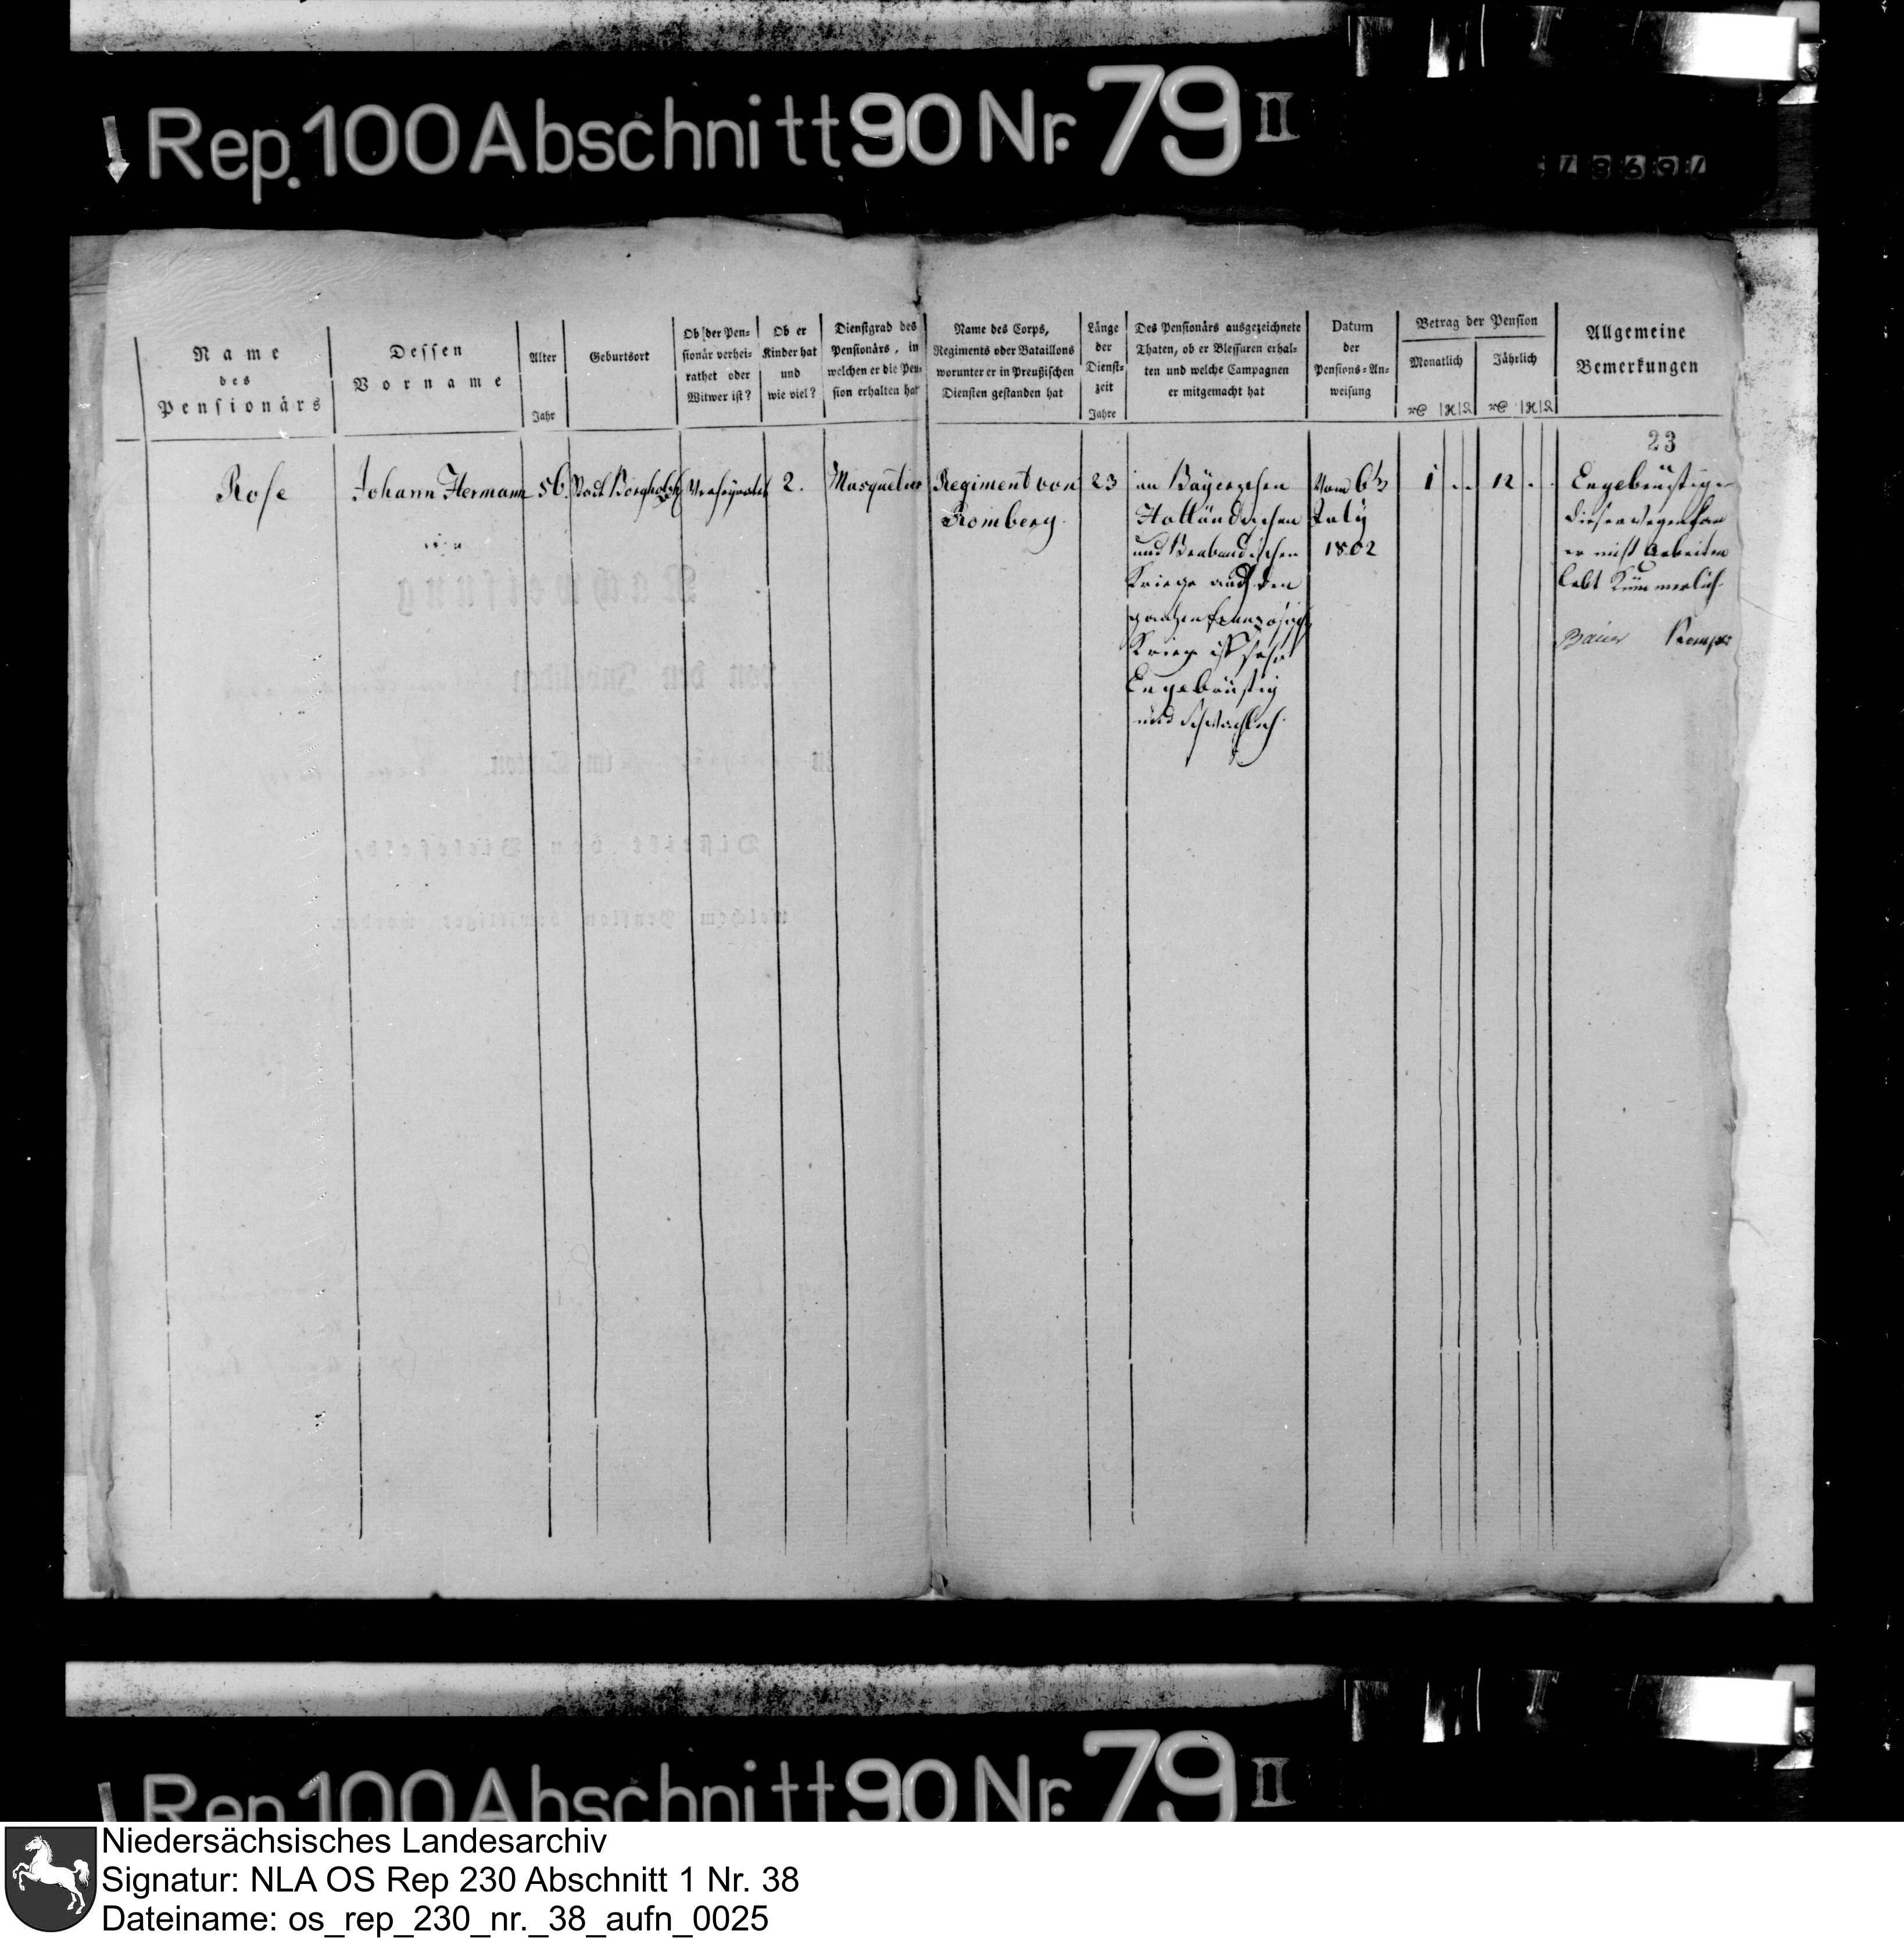 Rep. 100 Abschnitt 90 Nr. 79 II
Name
des
Pensionärs
Dessen
Vorname
Alter
Jahr
Geburtsort
Ob der Pen-
sionär verhei-
rathet oder
Witwer ist?
Ob er
Kinder hat
und
wie viel?
Dienstgrad des
Pensionärs, in
welchen er die Pen-
sion erhalten hat
Name des Corps,
Regiments oder Bataillons
worunter er in Preußischen
Diensten gestanden hat
Länge
der
Dienst-
zeit
Jahre
Des Pensionärs ausgezeichnete
Thaten, ob er Blessuren erhal-
ten und welche Campagnen
er mitgemacht hat
Datum
der
Pensions-An-
weisung
Betrag der Pension
Monatlich
Jährlich
Allgemeine
Bemerkungen
23
Rose
Johann Hermann
56.
Borgholzh
2.
Musquetier
Regiment von
Romberg.
23
im Bayerschen
Holländischen
und Brabandischen
Kriege auch den
ganzen französisch
Krieg ist sehr
Engebrüstig
und schwächlich.
Vom 6t
July
1802
1 . .
12 . .
Engebrüstig
dieserwegen kan
er nicht Arbeiten
lebt Kümmerlich.
Rep. 100 Abschnitt 90 Nr. 79 II
Niedersächsisches Landesarchiv
Signatur: NLA OS Rep 230 Abschnitt 1 Nr. 38
Dateiname: os_rep_230_nr._38_aufn_0025